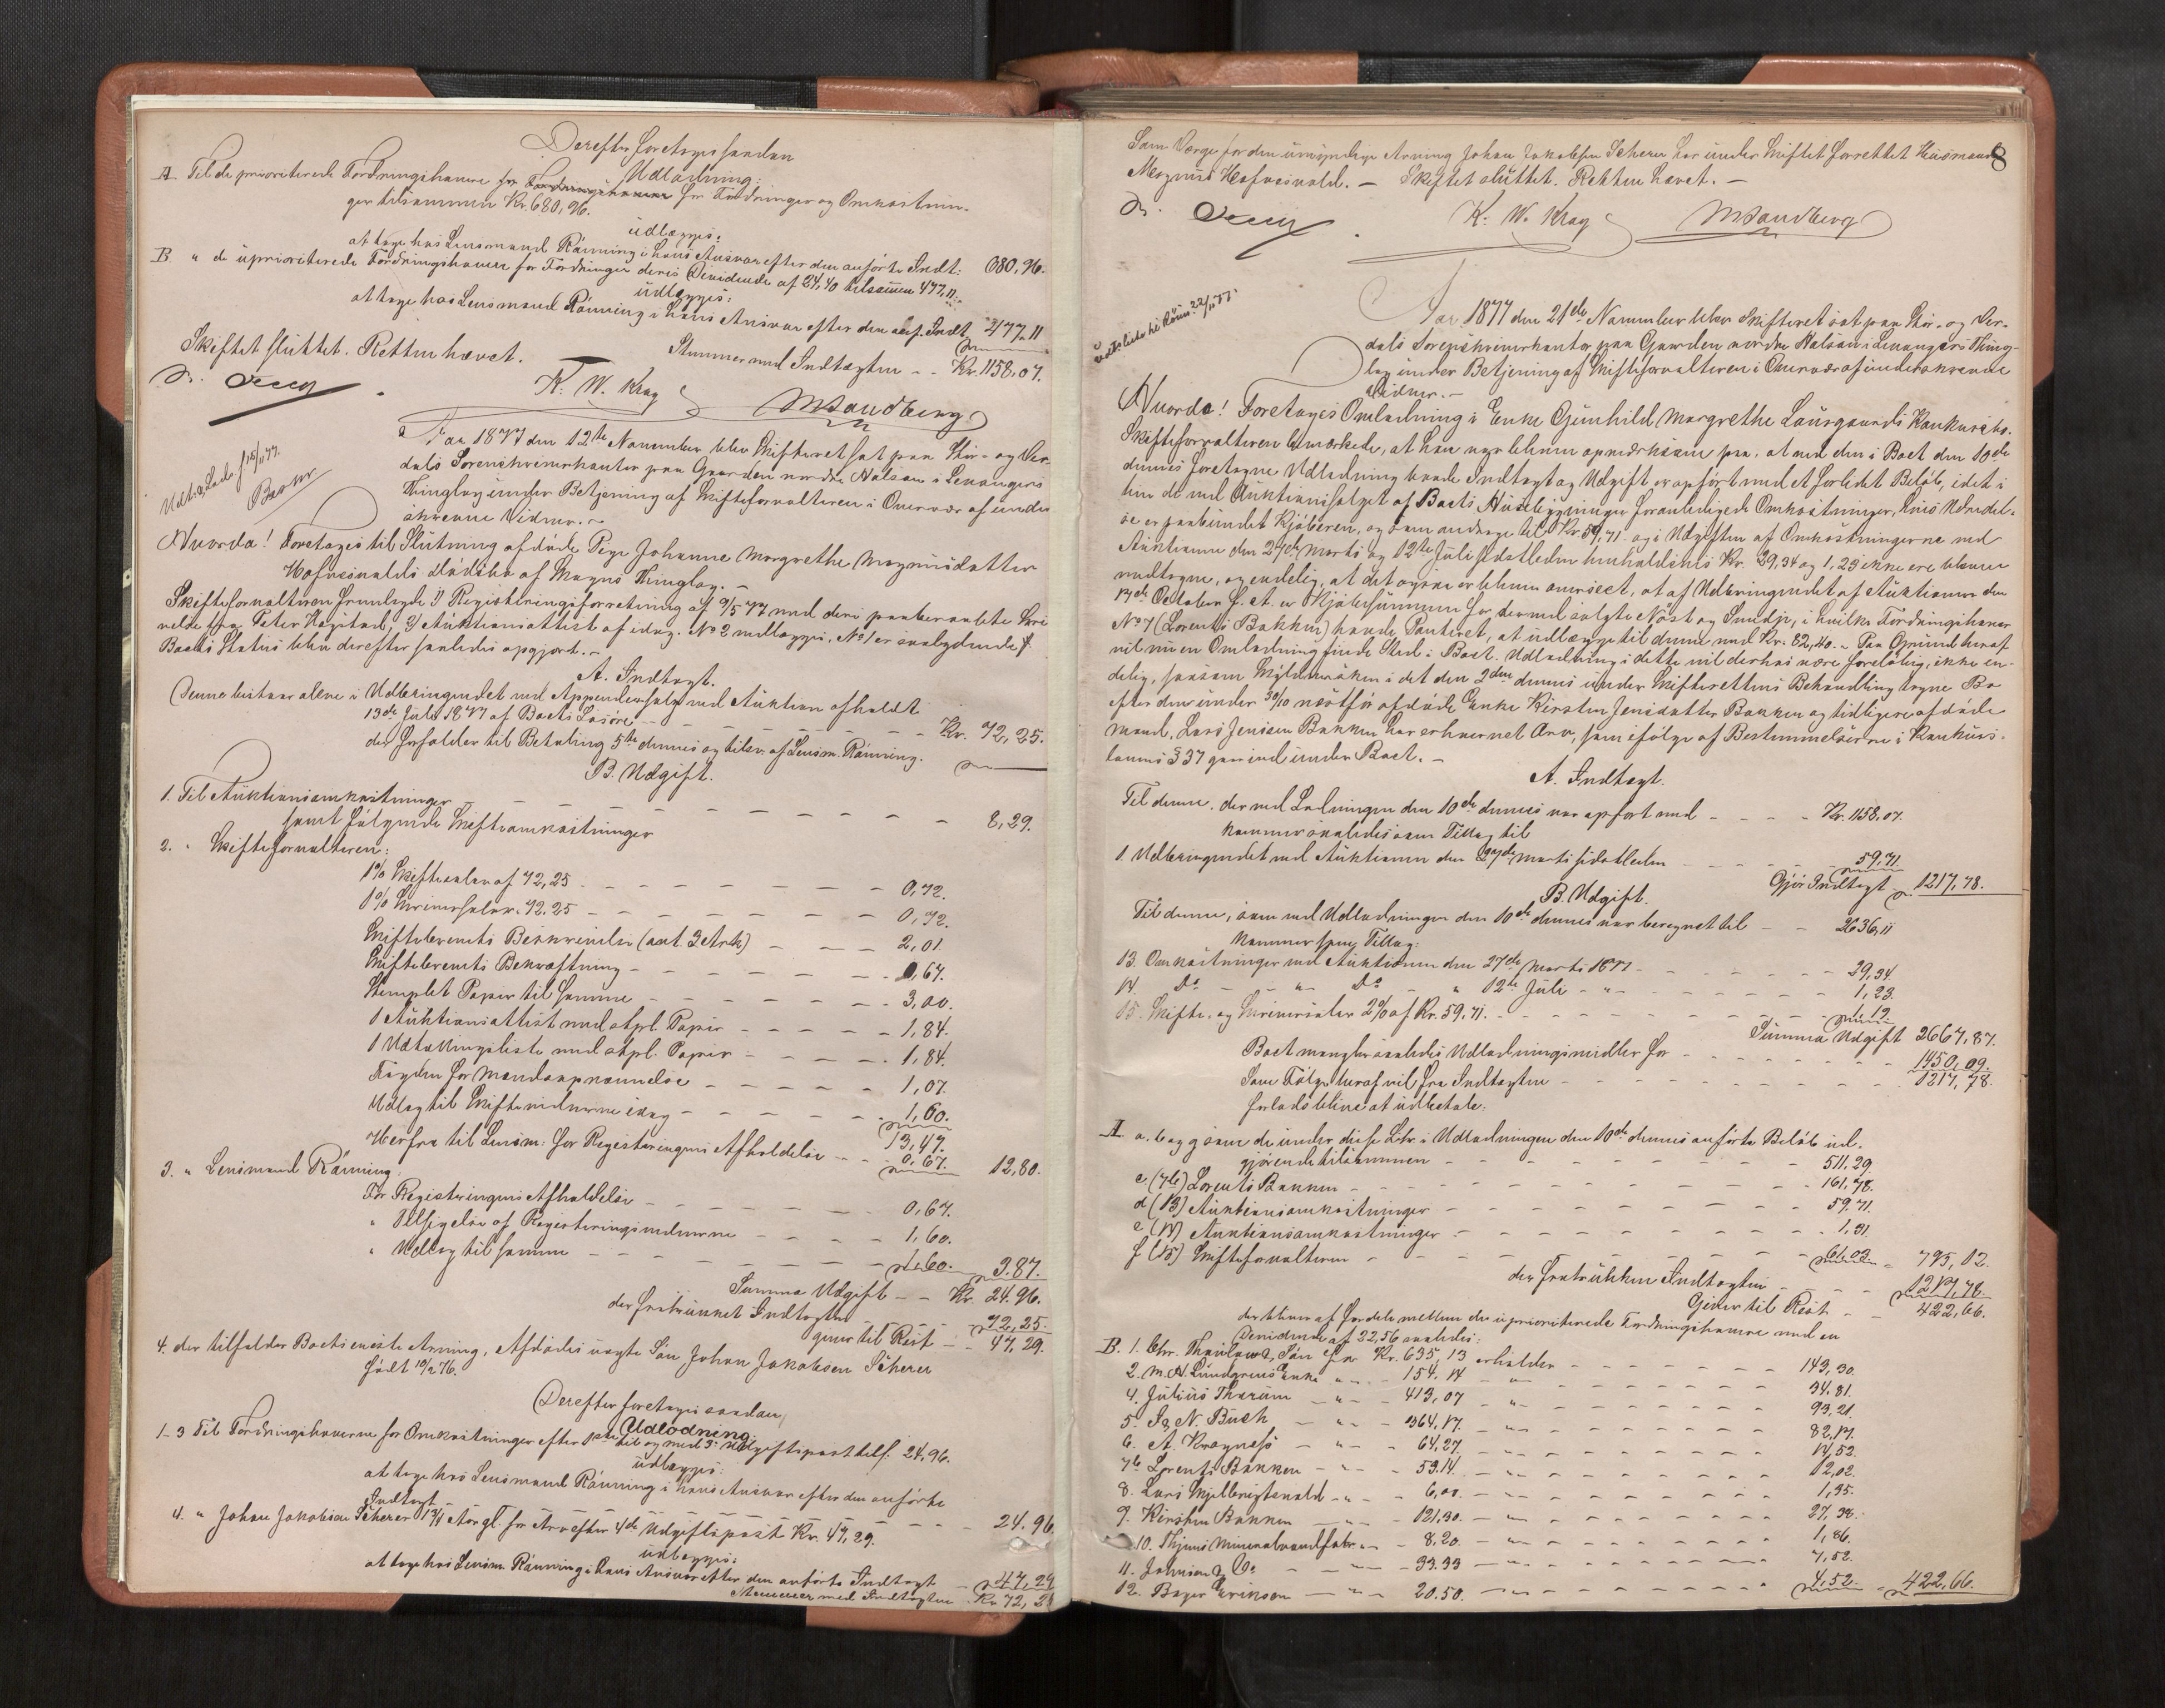 Derefter foretoges saadan
Udlodning:
A. Til de prioriterede Fordringshavere for Fordringshavere for Fordringer og Omkostnin-
ger tilsammen Kr. 680,96.
udlægges:
at tage hos Lensmand Rönning i hans Ansvar efter den anförte Indt: 680,96.
B. " de uprioriterede Fordringshavere for Fordringer deres Dividende af 24,40 tilsammen 477,11
udlægges:
at tage hos Lensmand Rönning i hans Ansvar efter den anf. Indt 477,11
Stemmer med Indtægten - - Kr. 1158,07.
Skiftet sluttet. Retten hævet.
K. W. Krag
M Sandberg
Aar 1877 den 12te November blev Skifteret sat paa Stör- og Vær-
dals Sorenskriverkontor paa Gaarden nordre Halsan i Levangers
Thinglag under Betjening af Skifteforvalteren i Overvær af under-
skrevne Vidner. -
Nvorda! Foretoges til Slutning afdöde Pige Johanne Margrethe Magnusdatter
Hofvesvalds Dödsbo af Magns Thinglag. -
Skifteforvalteren fremlagde 1) Registreringsforretning af 9/5 77 med deri paaberaabte Skri
velse fra Peter Nagstad, 2) Auktionsattest af idag. No 2 vedlægges, No 1 er saalydende #
Boets Status blev derefter saaledes opgjort. -
A. Indtægt.
Denne bestaar alene i Udbringendet ved Auktion afholdt
13de Juli 1877 af Boets Lösöre - - - Kr. 72,25.
der forfalder til Betaling 5te dennes og tilsv. af Lensm. Rönning.
B. Udgift.
1. Til Auktionsomkostninger - - - 8,29.
samt fölgende Skifteomkostninger
2. " Skifteforvalteren:
1% Skiftesalær af 72,25 - - - 0,72.
1% Skriversalær 72.25 - - - 0,72.
Skiftebrevets Beskrivelse (ant. 3 Ark) - - - 2,01.
Skiftebrevets Bekræftning - - - 0,67.
Stemplet Papir til samme - - - 3,00.
1 Auktionsattest med stpl. Papir - - - 1,84.
1 Udtællingsliste med stpl. Papir - - - 1,84.
Fogden for Mandsopnævnelse - - - 1,07.
Udlæg til Skiftevidnerne idag - - - 1,60.
13,47.
Herfra til Lensm: for Registeringens Afholdelse - - 0,67. 12,80.
3. " Lensmand Rönning:
For Registringens Afholdelse - - - 0,67.
" Tilsigelse af Registeringsvidnerne - - - 1,60.
" Udlæg til samme - - - 1,60. 3,87.
Summa Udgift - - Kr. 24.96.
der fratrukket Indtægten - - - 72,25.
giver til Rest - - 47,29.
4. der tilfalder Boets eneste Arving, Afdödes uægte Sön Johan Jakobsen Scherer
födt 10/2 76.
Derefter foretoges saadan
Udlodning:
1-3 Til Fordringshaverne for Omkostninger efter 1ste til og med 3de Udgiftspost tils. 24,96.
udlægges:
at tage hos Lensmand Rönning i hans Ansvar efter den anförte
Indtægt - - - 24.96
4. " Johan Jakobsen Scherer 1 3/4 Aar gl. for Arv efter 4de Udgiftspost Kr. 47,29.
udlægges:
at tage hos Lensm. Rönning i hans Ansvar efter den anförte Indtægt - 47,29
Stemmer med Indtægten Kr. 72,2
8
Som Værge for den umyndige Arving Johan Jakobsen Scherer har under Skiftet forrettet Husmand
Magnus Hofvesvald. - Skiftet sluttet. Retten hævet. -
K. W. Krag
M Sandberg
Aar 1877 den 21de November blev Skifteret sat paa Stör- og Vær-
dals Sorenskriverkontor paa Gaarden nordre Halsan i Levangers Thing-
lag under Betjening af Skifteforvalteren i Overvær af underskrevne
Vidner. -
Nvorda! Foretoges Omlodning i Enke Gunhild Margrethe Laursgaards Konkursbo.
Skifteforvalteren bemærkede, at han var bleven opmærksom paa, at ved den i Boet den 10de
dennes foretagne Udlodning baade Indtægt og Udgift er opfört med et forlidet Belöb, idet i
hin de ved Auktionssalget af Boets Huusbygninger foranledigede Omkostninger, hvis Udredel-
se er paabundet Kjöberen, og som andrage til Kr. 59,71. og i Udgiften af Omkostningerne ved
Auktionerne den 27de Marts og 12te Juli sidstleden henholdsvis Kr. 29,34 og 1,23 ikke ere blevne
medtagne, og endelig, at det ogsaa er bleven overseet, at af Udbringendet af Auktionen den
17de October s. A. er Kjöbesummen for derved solgte Nöst og Smedje, i hvilke Fordringshaver
No 7 (Lorents Bakken) havde Panteret, at udlægge til denne med Kr. 82,40. - Paa Grund heraf
vil nu en Omlodning finde Sted i Boet. Udlodning i dette vil derhos være foreløbig, ikke en-
delig, saasom Skyldnersken i det den 2den dennes under Skifterettens Behandling tagne Bo
efter den under 30/10 næstför afdöde Enke Kirsten Jensdatter Bakken og tidligere afdöde
Mand, Lars Jensen Bakken har erhvervet Arv, som ifölge af Bestemmelserne i Konkurs-
lovens § 37 gaar ind under Boet. -
A. Indtægt.
Til denne, der ved Lodningen den 10de dennes var opfört med - - - Kr. 1158,07.
kommer saaledes som Tillæg til
1. Udbringendet ved Auktionen den 27de Marts sidstleden - - - 59,71.
Gjör Indtægt 1217,78.
B. Udgift.
Til denne, som ved Udlodningen den 10de dennes var beregnet til - - 2636,11
kommer som Tillæg:
13. Omkostninger ved Auktionen den 27de Marts 1877 - - - 29,34
14. Do - " - Do - " 12te Juli - " - - - 1,23.
15. Skifte- og Skriversalær 2% af Kr. 59,71. - - - 1,19.
Summa Udgift 2667,87.
Boet mangler saaledes Udlodningsmidler for - - - 1450,09.
Som Fölge heraf vil fra Indtægten - - - 1217,78.
forlods blive at udbetale:
A. a. b og g som de under disse Litr. i Udlodningen den 10de dennes anförte Belöb ud-
gjörende tilsammen - - - 511,29
c. (7de) Lorents Bakken - - - 161,78.
d (13) Auktionsomkostninger - - - 59,71.
e (14) Auktionsomkostninger - - - 1,31.
f (15) Skifteforvalteren - - - 61,03 - 795,12.
der fratrukken Indtægten - - - 1217,78.
Giver til Rest - - 422,66.
der bliver at fordele mellem de uprioriterede Fordringshavere med en
Dividende af 22,56 saaledes:
B. 1. Chr. Thaulow & Sön for Kr. 635,13 erholder - - - 143,30.
2. M. A. Lundgrens Enke " - - 154,14 - " - - - 34.81.
4. Julius Thurum - " - - 413,07 - " - - - 93,21.
5. I. & N. Buch - " - - 364,17. - " - - - 82,17.
6. A. Kragness - " - - 64,27. - " - - - 14,52.
7b Lorents Bakken - " - - 53.14. - " - - - 12,02.
8. Lars Mjelbrigtsvald - " - - 6,00. - " - - - 1,35.
9. Kirsten Bakken - " - - 121,30. - " - - - 27,38.
10. Thjems Mineralvandfabr. " - - 8,20. - " - - - 1,86.
11. Johnsen & Co - " - - 33.33 - " - - - 7,52.
12. Eriksen - " - - 20.50. - " - - - 4,52. - 422,66.